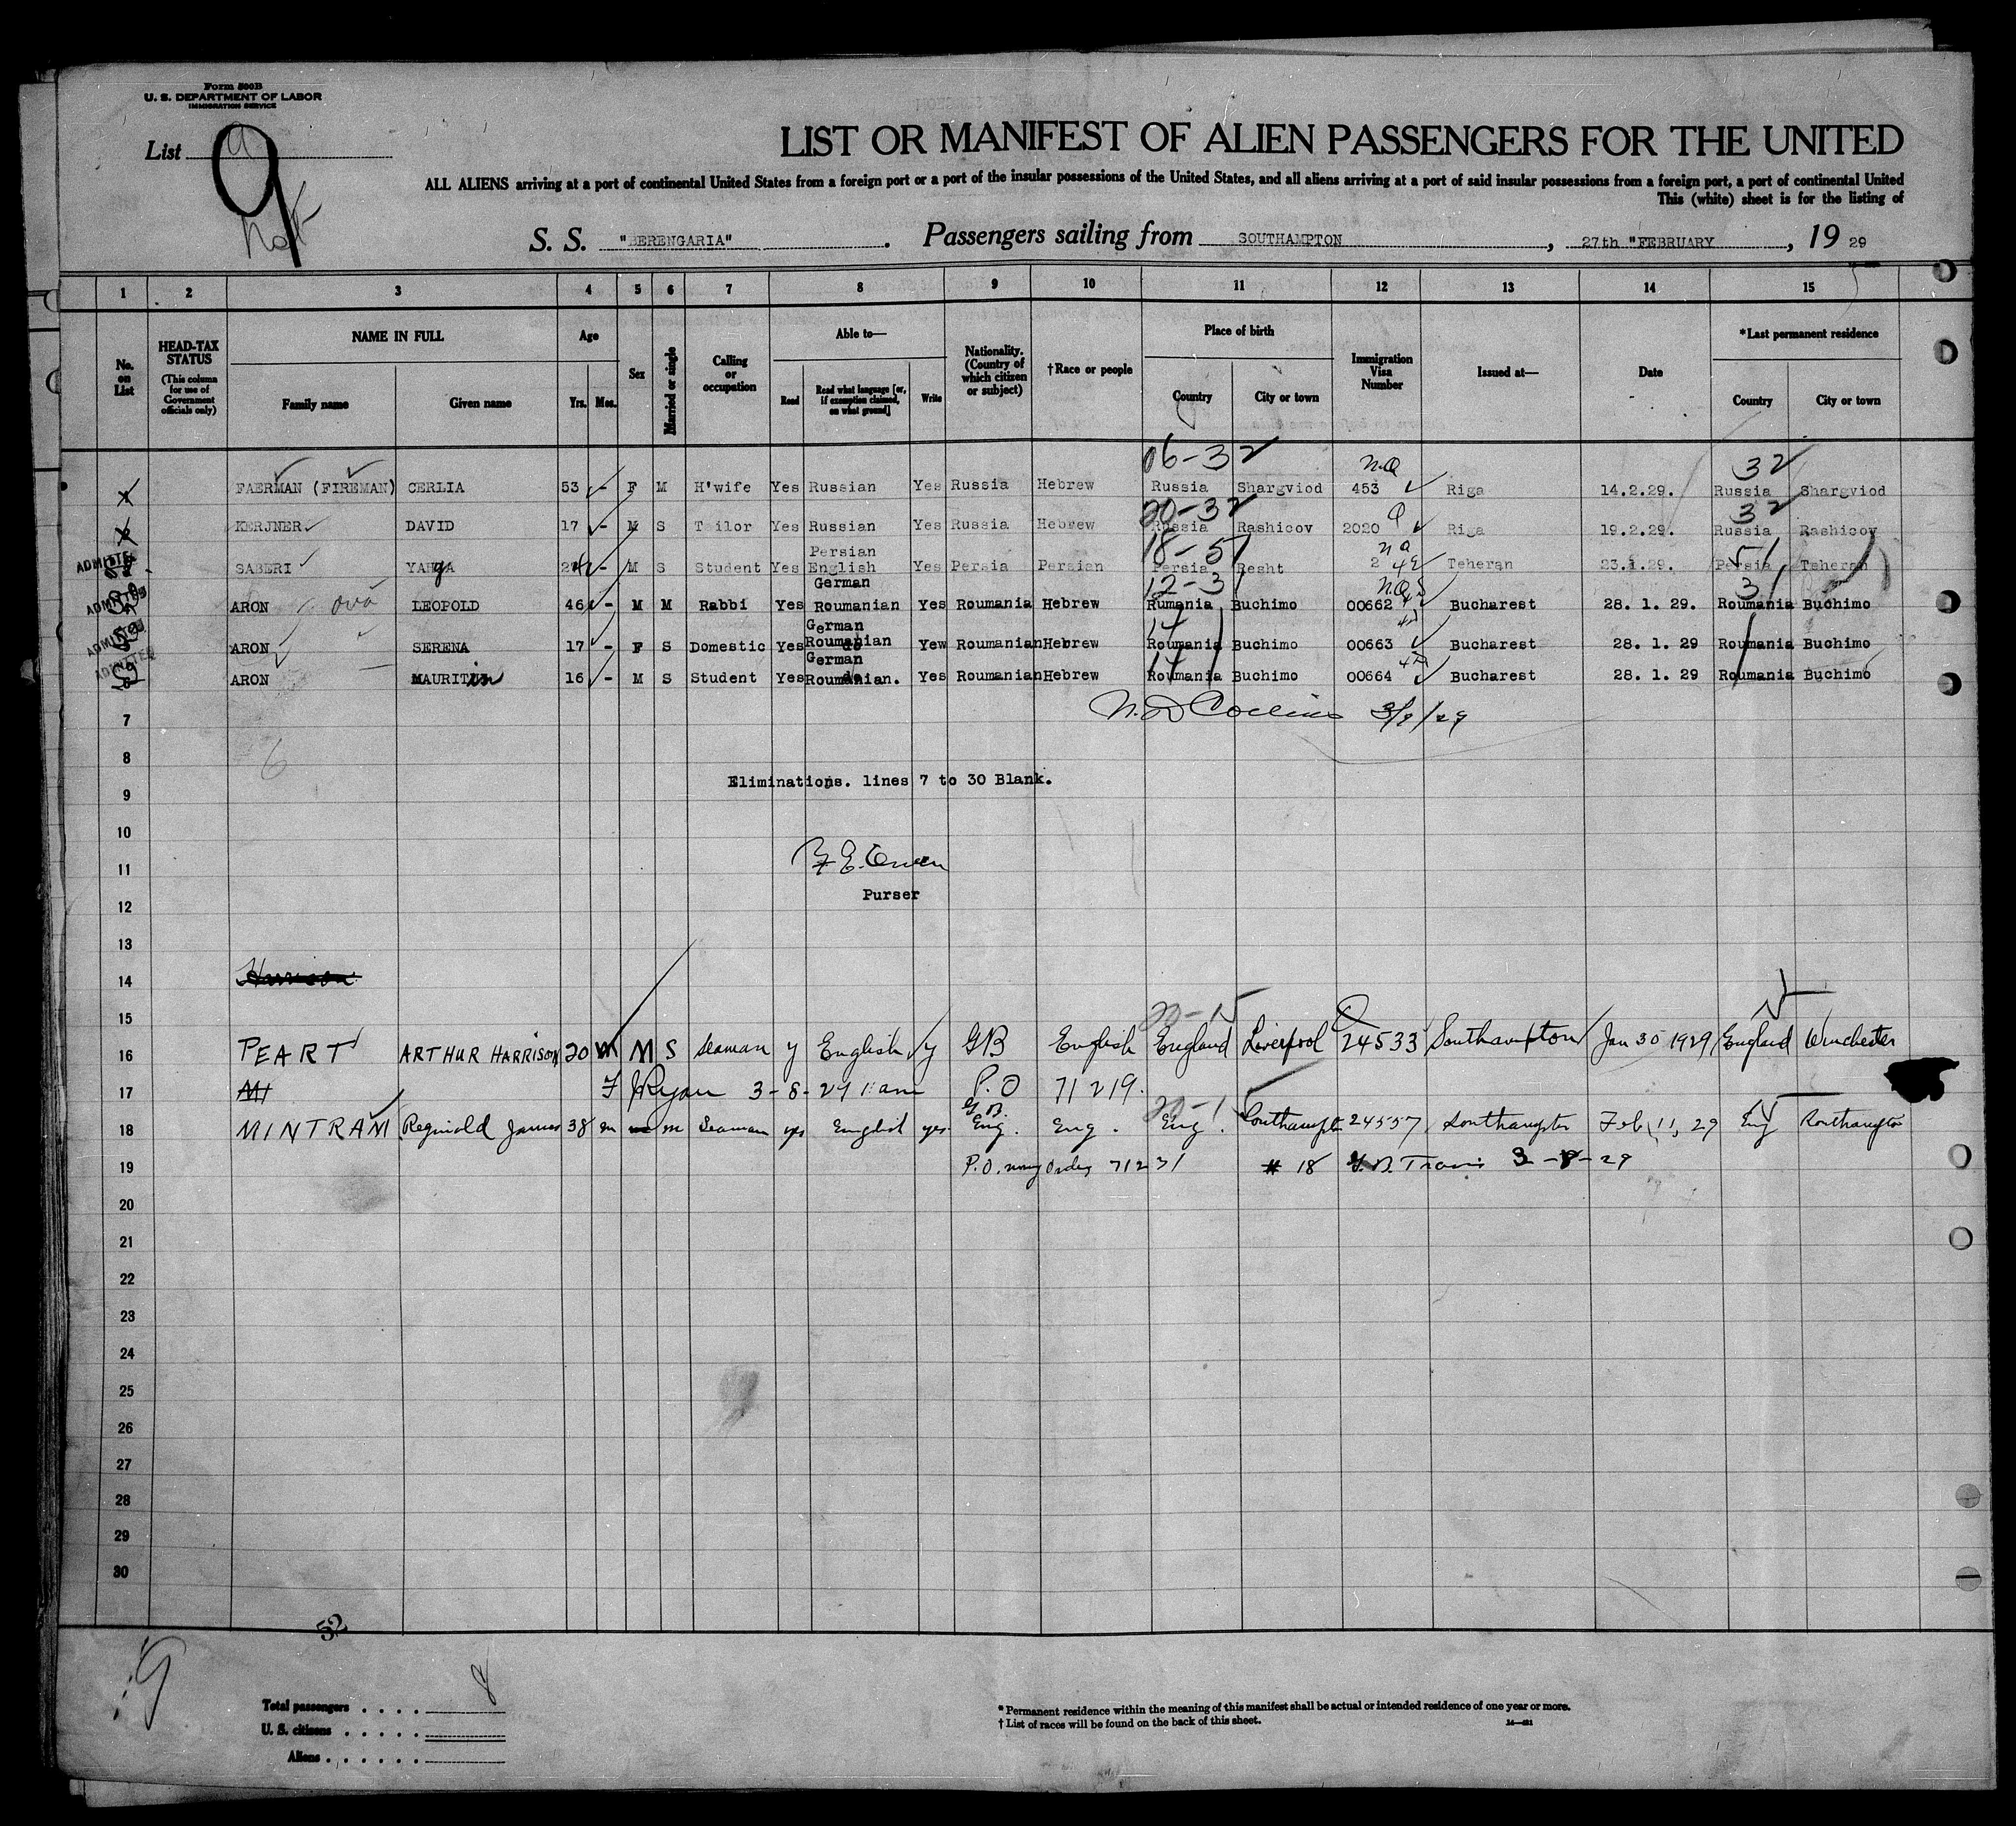 Form 500B
U. S. DEPARTMENT OF LABOR
IMMIGRATION SERVICE
List 9
9
LIST OR MANIFEST OF ALIEN PASSENGERS FOR THE UNITED
ALL ALIENS arriving at a port of continental United States from a foreign port or a port of the insular possessions of the United States, and all aliens arriving at a port of said insular possessions from a foreign port, a port of continental United
This (white) sheet is for the listing of
S. S. "BERENGARIA". Passengers sailing from SOUTHAMPTON, 27th "FEBRUARY, 19 29
1 2 3 4 5 6 7 8 9 10 11 12 13 14 15
No. on List
HEAD-TAX STATUS (This column for use of Government officials only)
NAME IN FULL Family name Given name
Age Yrs. Mos.
Sex
Married or single
Calling or occupation
Able to— Read Read what language [or, if exemption claimed, on what ground] Write
Nationality. (Country of which citizen or subject)
†Race or people
Place of birth Country City or town
Immigration Visa Number
Issued at—
Date
*Last permanent residence Country City or town
06-32 N.Q 32
1 FAERMAN (FIREMAN) CERLIA 53 - F M H'wife Yes Russian Yes Russia Hebrew Russia Shargviod 453 Riga 14.2.29. Russia Shargviod
20-32 Q 32
2 KERJNER DAVID 17 - M S Tailor Yes Russian Yes Russia Hebrew Russia Rashicov 2020 Riga 19.2.29. Russia Rashicov
Persian 18-51 5
ADMITTED SABERI YAHYA - M S Student Yes English Yes Persia Persian Persia Resht 2 Teheran 23.1.29. Persia Teheran
German 12-31 31
ADMITTED ARON LEOPOLD 46 - M M Rabbi Yes Roumanian Yes Roumania Hebrew Rumania Buchimo 00662 Bucharest 28. 1. 29. Roumania Buchimo
German
ADMITTED ARON SERENA 17 - F S Domestic Yes Roumanian Yew Roumanian Hebrew Roumania Buchimo 00663 Bucharest 28. 1. 29 Roumania Buchimo
German
ADMITTED ARON MAURIT 16 - M S Student Yes Roumanian. Yes Roumanian Hebrew Roumania Buchimo 00664 Bucharest 28. 1. 29 Roumania Buchimo
7 Collins 3/8/29
8
6
Eliminations. lines 7 to 30 Blank.
9
10
11
Purser
12
13
14
15
20-1
16 PEART ARTHUR HARRISON 20 M S Seaman y English y GB English England Liverpool 24533 Southampton Jan 30 1929 England Winchester
17 MI Ryan 3-8-29 P.O 71219.
G.B. 20-1
18 MINTRAM Reginald James 38 m m Seaman yes English yes Eng. Eng. Eng. Southampt 24557 Southampton Feb 11, 29 Eng Southampton
19 P.O. money Order 71231 # 18 Travis 3-8-29
20
21
22
23
24
25
26
27
28
29
30
52
9
Total passengers . . . . 8
U. S. citizens . . . . .
Aliens . . . . . .
* Permanent residence within the meaning of this manifest shall be actual or intended residence of one year or more.
† List of races will be found on the back of this sheet.